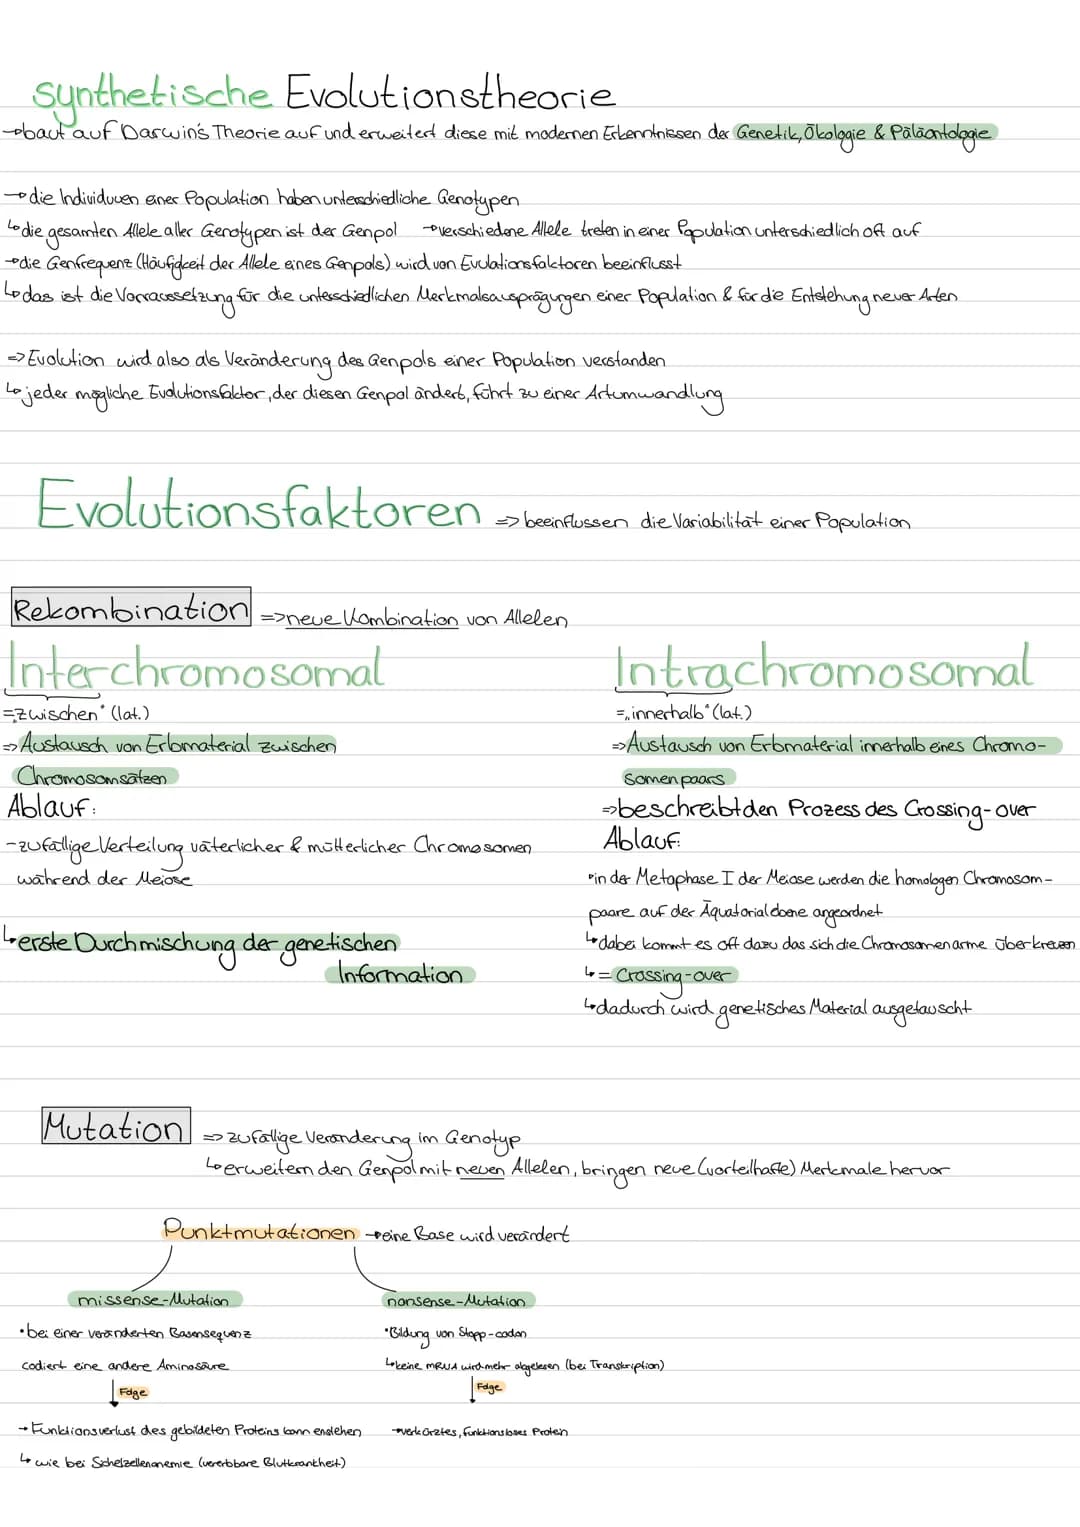 synthetische Evolutionstheorie
→baut auf Darwin's Theorie auf und erweitert diese mit modernen Erkenntnissen der Genetik, Ökologie & Paläontologie
→die Individuuen einer Population haben unterschiedliche Genotypen
↳die gesamten Allele aller Genotypen ist der Genpol →verschiedene Allele treten in einer Population unterschiedlich oft auf
→die Genfrequenz (Häufigkeit der Allele eines Genpols) wird von Evulationsfaktoren beeinflusst
↳das ist die Vorraussetzung für die unterschiedlichen Merkmalsausprägungen einer Population & für die Entstehung neuer Arten
=>Evolution wird also als Veränderung des Genpols einer Population verstanden
↳jeder mögliche Evolutionsfaktor, der diesen Genpol ändert, führt zu einer Artumwandlung
Evolutionsfaktoren => beeinflussen die Variabilität einer Population
Rekombination =>neue Kombination von Allelen
Interchromosomal
=zwischen" (lat.)
=>Austausch von Erbmaterial zwischen
Chromosomsätzen
Ablauf:
-zufällige Verteilung väterlicher & mütterlicher Chromosomen
während der Meiose
↳erste Durchmischung der genetischen
Information
Intrachromosomal
=„innerhalb" (lat.)
=>Austausch von Erbmaterial innerhalb eines Chromo-
somenpaars
=>beschreibt den Prozess des Crossing-over
Ablauf:
•in der Metaphase I der Meiose werden die homologen Chromosom-
paare auf der Äquatorialebene angeordnet
↳dabei kommt es oft dazu das sich die Chromosomenarme überkreuzen
↳= Crossing-over
↳dadurch wird genetisches Material ausgetauscht
Mutation => zufällige Veränderung im Genotyp
↳erweitern den Genpol mit neuen Allelen, bringen neue (vorteilhafte) Merkmale hervor
Punktmutationen →eine Base wird verändert
missense-Mutation
•bei einer veränderten Basensequenz
codiert eine andere Aminosäure
↓ Folge
→Funktionsverlust des gebildeten Proteins kann enstehen
↳ wie bei Sichelzellenanemie (vererbbare Blutkrankheit)
nonsense-Mutation
•Bildung von Stopp-codon
↳keine mRNA wird mehr abgelesen (bei Transkription)
↓ Folge
→verkürztes, funktionsloses Protein